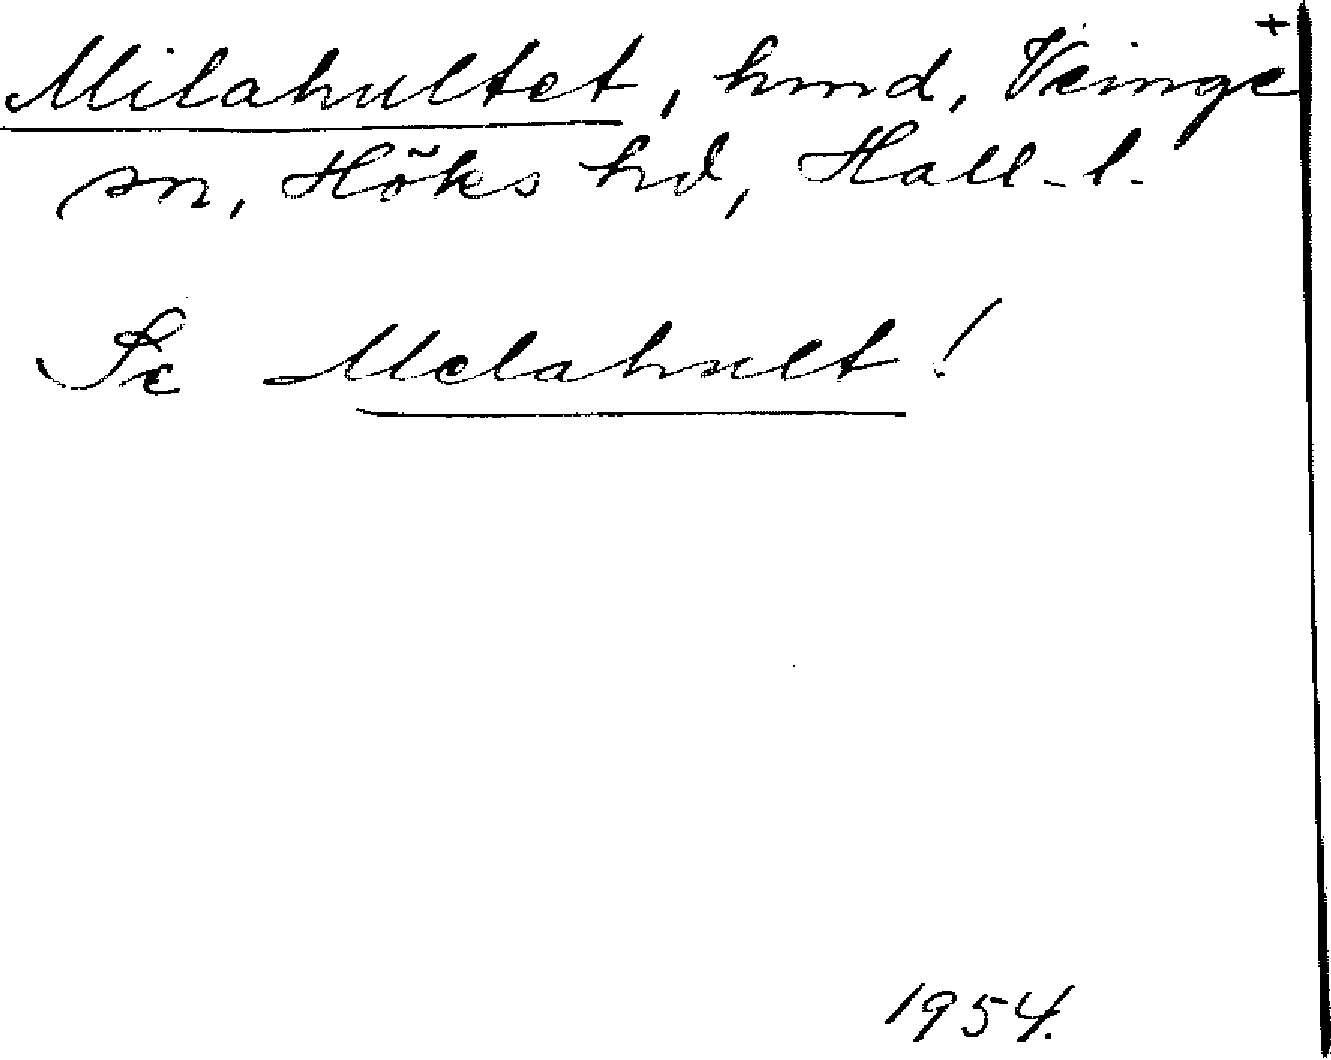 +
Milahultet, hmd, Veinge
sn, Höks hd, Hall. l.
Se Melahult!
1954.